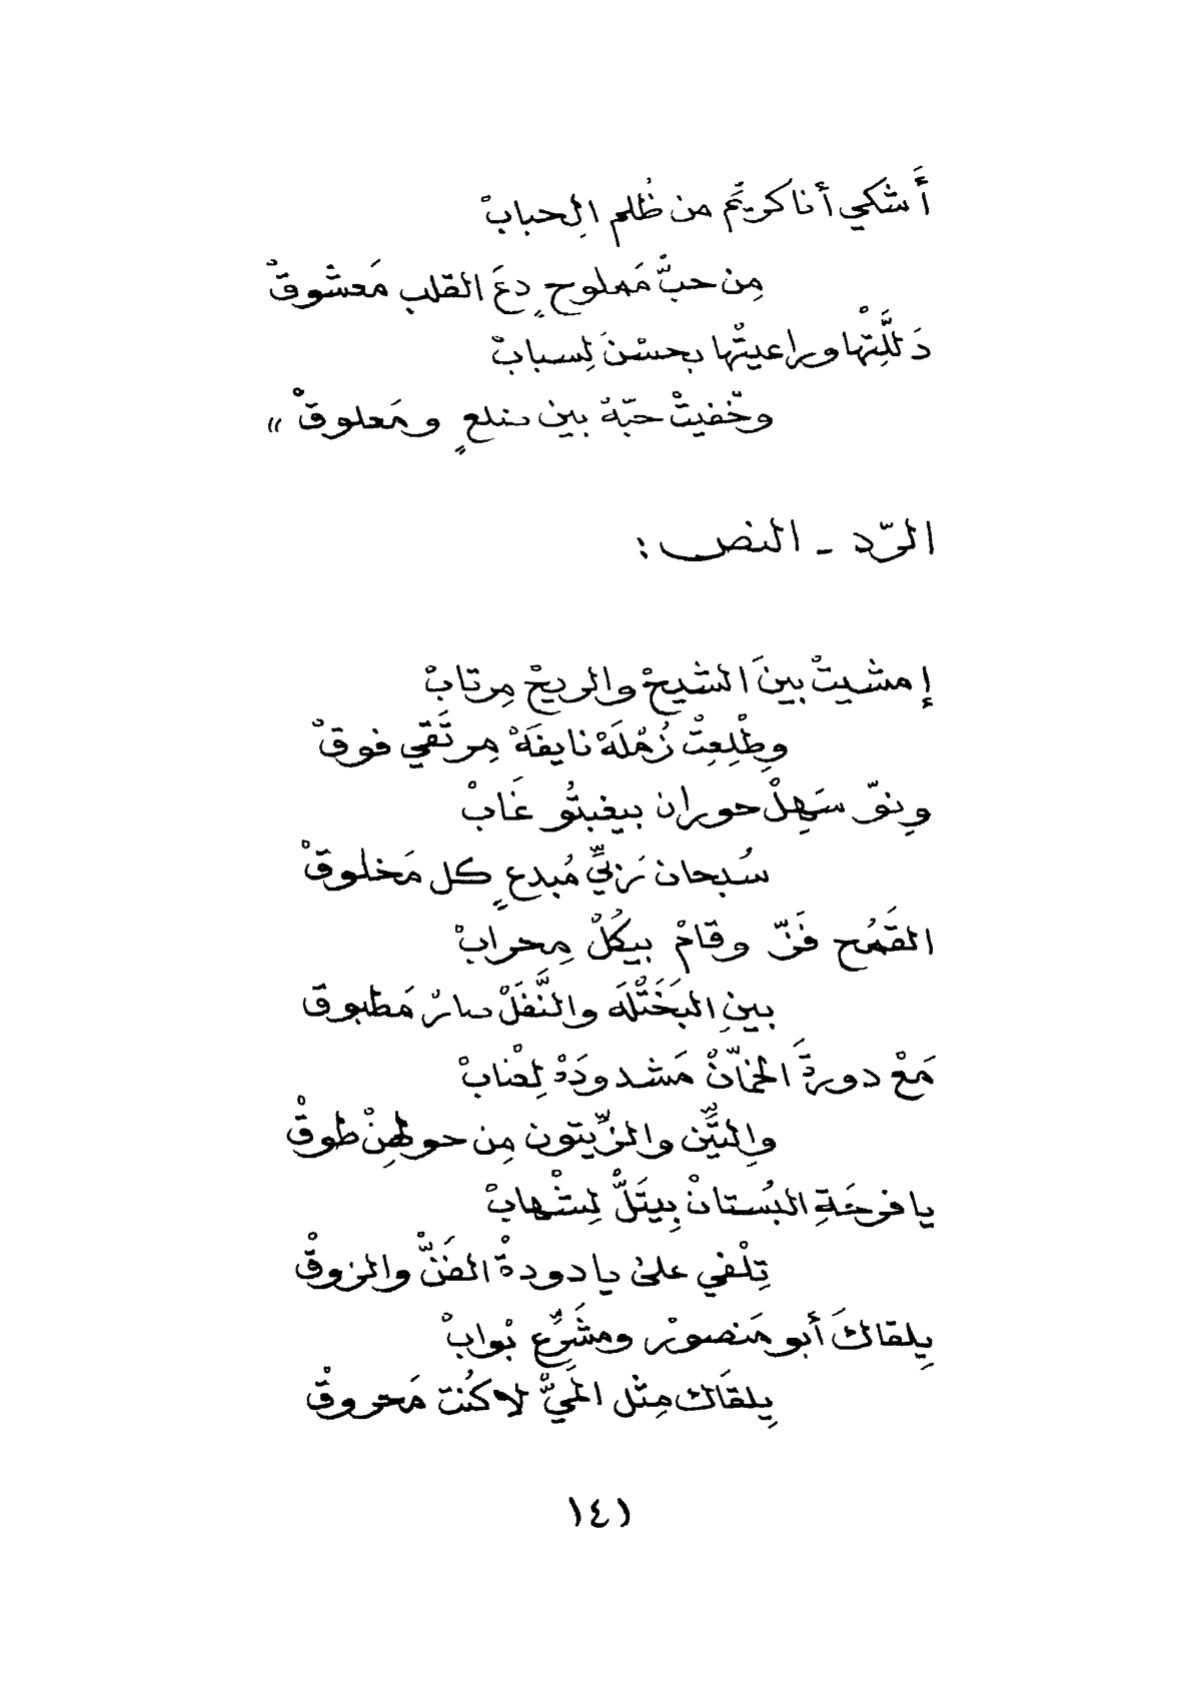 أَشكي أنا كريِّم من ظُلم الِحبابْ
مِن حبٍّ مَملوحٍ دعَ القلب مَعشوقْ
دَللَّتْها وراعيتْها بحسْنَ لِسبابْ
وخّفيتْ حبّهْ بين ضلعٍ ومَعلوقْ »
الرّد - النص :
إمشيتْ بينَ الشيحْ والريحْ مِرتابْ
وِطْلِعِتْ زُمْلَهْ نايفَهْ مِرتَقي فوقْ
وِنوّ سَهِلْ حوران بيغبتُو غَابْ
سُبحان رَبّي مُبدعٍ كل مَخلوقْ
القَمُح فَزّ وقامْ بيكُلْ مِحرابْ
بينِ البَخَتْلَه والنَّفَلْ صارْ مَطبوق
مَعْ دورةَ الخمّانْ مَشدودَهْ لِعْنابْ
والتِّين والزّيتون مِن حولهِنْ طوقْ
يا فرحَةِ البُستانْ بِيتَلِّ لِشْهابْ
تِلْفي علىْ يا دودةْ الفَنِّ والزوقْ
يِلقاكَ أبو مَنصورْ ومشَرِّع بْوابْ
يِلقَاك مِثل المَيِّ لا كُنت مَحروقْ
١٤١